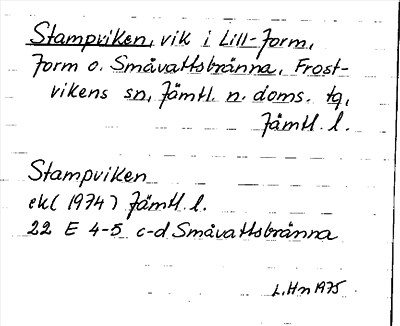 Stampviken, vik i Lill-Jorm,
Jorm o. Småvattsbränna, Frost-
vikens sn, Jämtl. n. doms. tg,
Jämtl. l.
Stampviken
ekl (1974) Jämtl. l.
22 E 4-5 c-d Småvattsbränna
L.Hn 1975